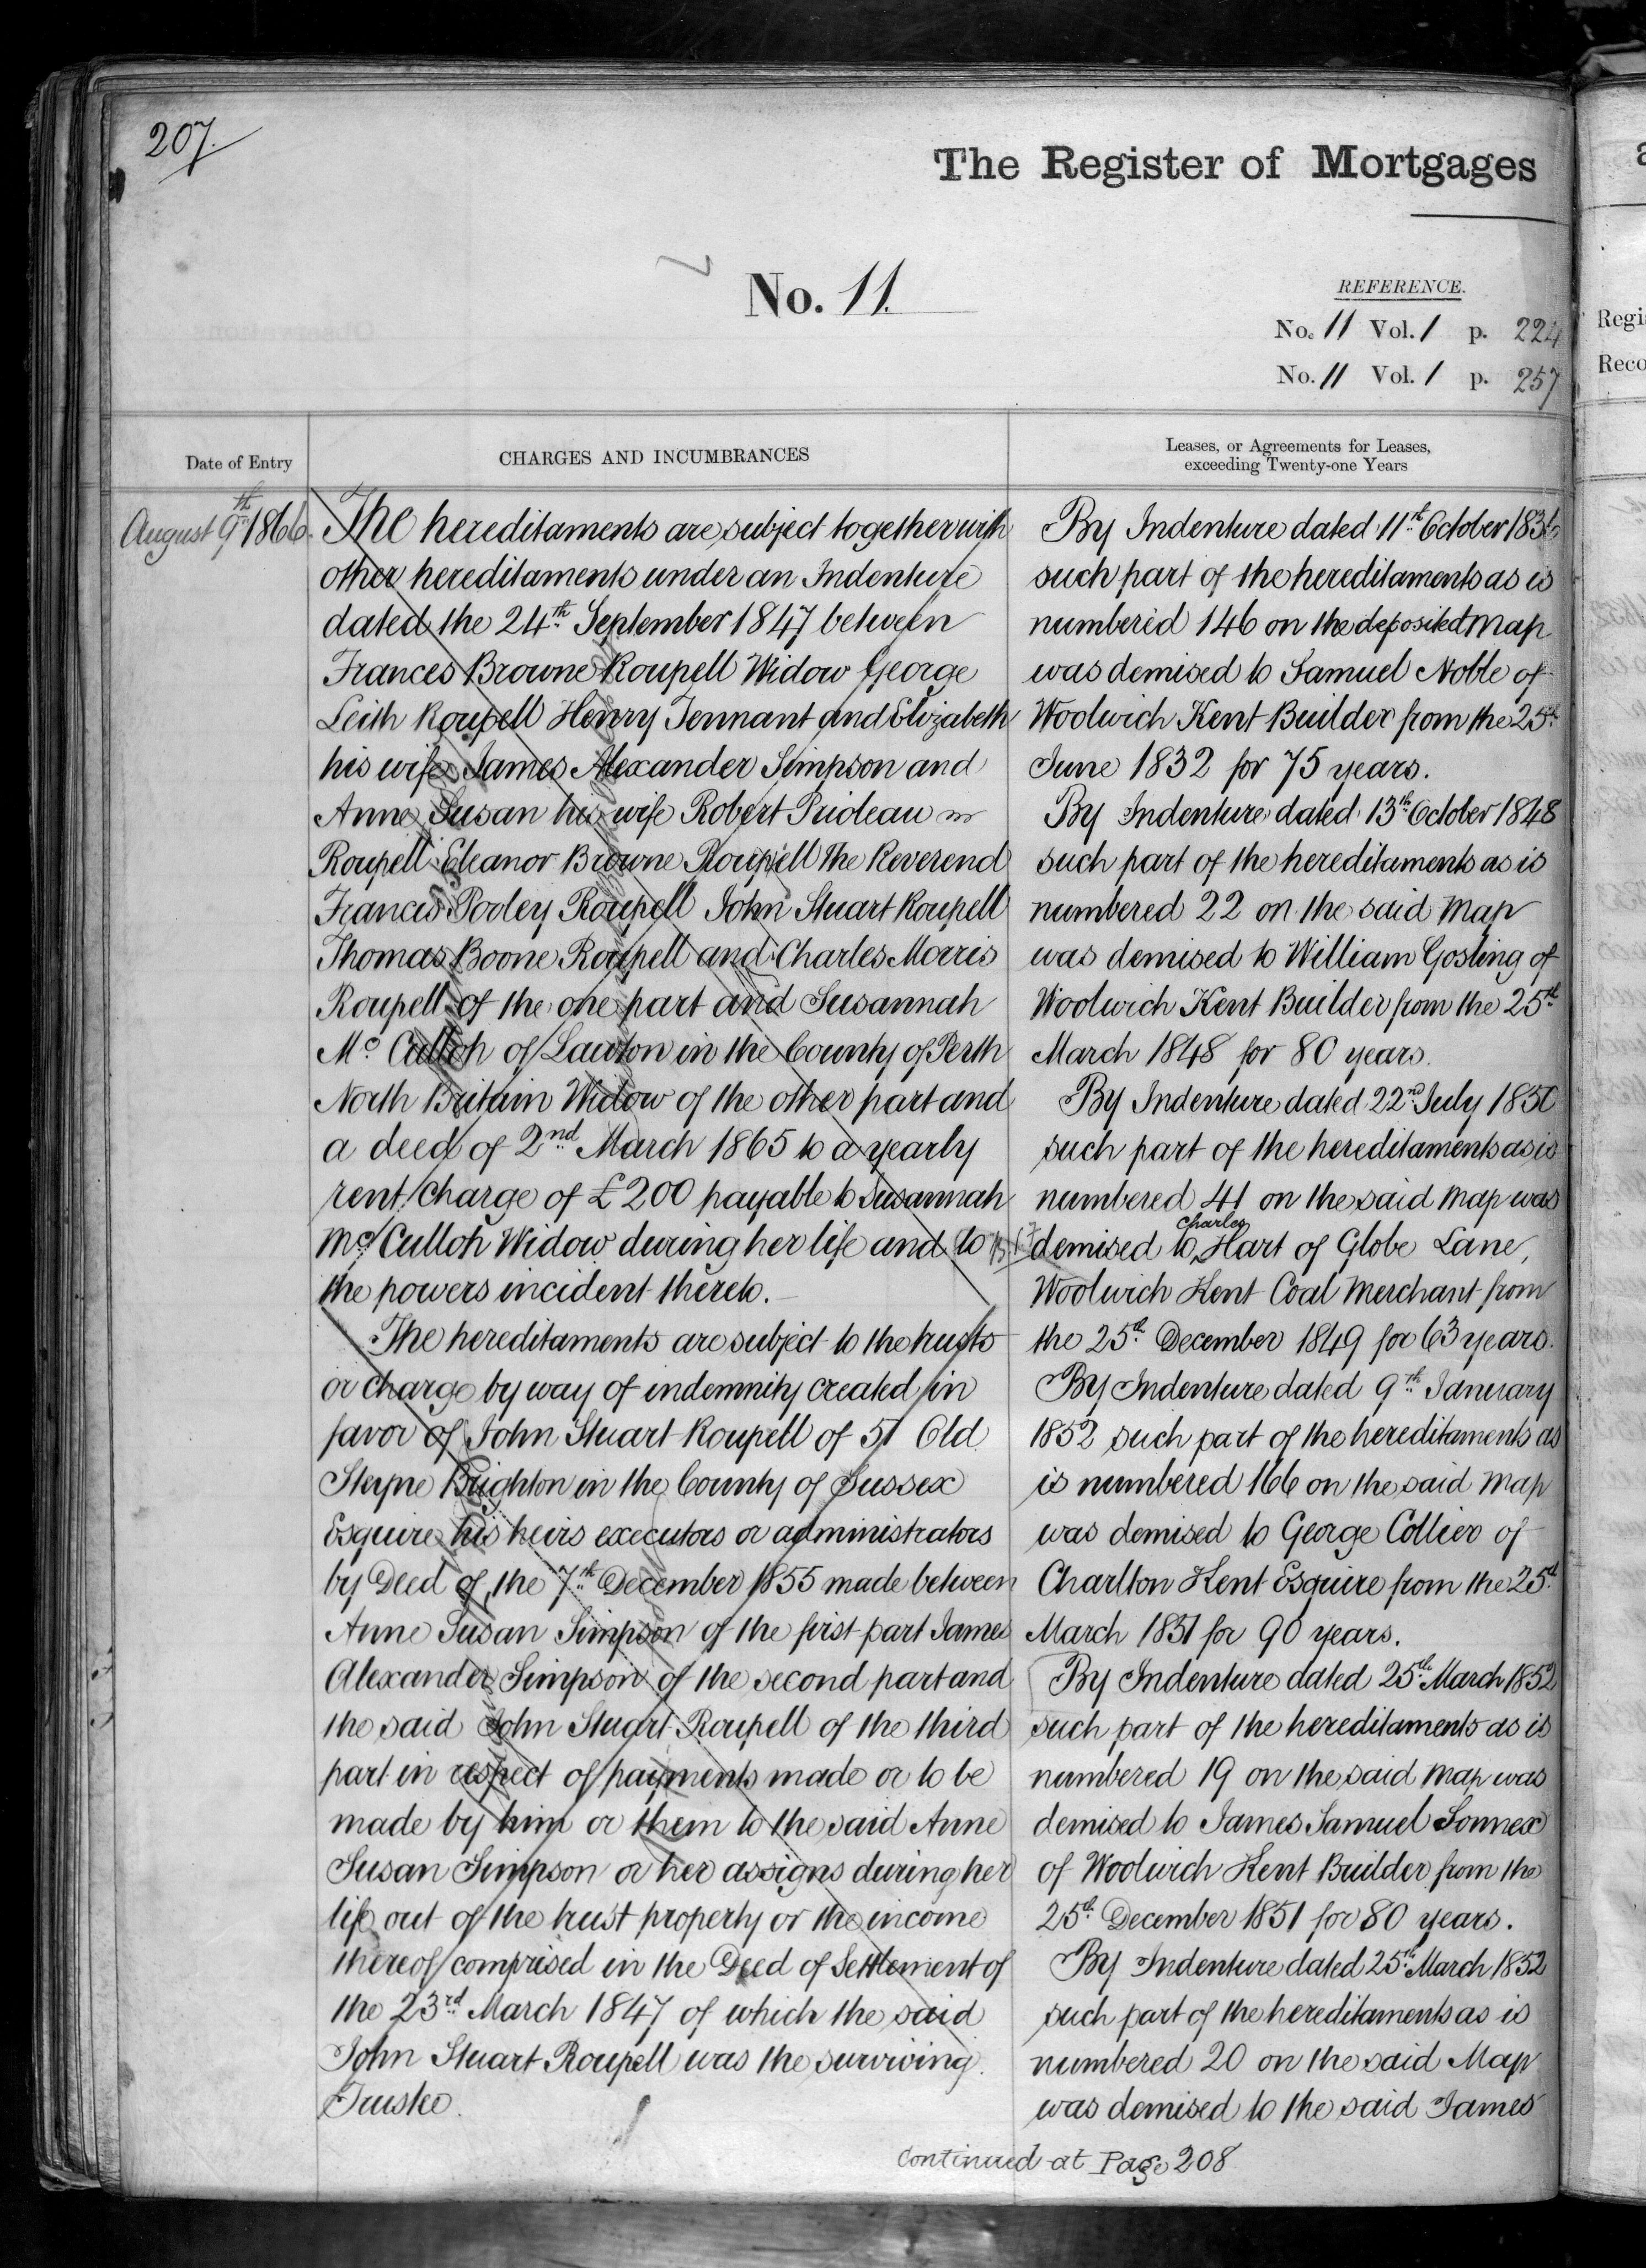 207.
The Register of Mortgages
No. 11.
REFERENCE.
No. 11 Vol. 1 p. 224
No. 11 Vol. 1 p. 257
Regi
Reco
Date of Entry
CHARGES AND INCUMBRANCES
Leases, or Agreements for Leases,
exceeding Twenty-one Years
August 9th 1866.
The hereditaments are subject together with
other hereditaments under an Indenture
dated the 24th September 1847 between
Frances Browne Roupell Widow George
Leith Roupell Henry Tennant and Elizabeth
his wife James Alexander Simpson and
Anne Susan his wife Robert Prioleau
Roupell Eleanor Browne Roupell the Reverend
Francis Pooley Roupell John Stuart Roupell
Thomas Boone Roupell and Charles Morris
Roupell of the one part and Susannah
Mc Culloh of Lawton in the County of Perth
North Britain Widow of the other part and
a deed of 2nd March 1865 to a yearly
rent charge of £200 payable to Susannah
Mc Culloh Widow during her life and to
the powers incident thereto.
The hereditaments are subject to the trusts
or charge by way of indemnity created in
favor of John Stuart Roupell of 51 Old
Steyne Brighton in the County of Sussex
Esquire his heirs executors or administrators
by Deed of the 7th December 1855 made between
Anne Susan Simpson of the first part James
Alexander Simpson of the second part and
the said John Stuart Roupell of the third
part in respect of payments made or to be
made by him or them to the said Anne
Susan Simpson or her assigns during her
life out of the trust property or the income
thereof comprised in the Deed of Settlement of
the 23rd March 1847 of which the said
John Stuart Roupell was the surviving
Trustee.
By Indenture dated 11th October 183
such part of the hereditaments as is
numbered 146 on the deposited map
was demised to Samuel Noble of
Woolwich Kent Builder from the 25th
June 1832 for 75 years.
By Indenture dated 13th October 1848
such part of the hereditaments as is
numbered 22 on the said Map
was demised to William Gosling of
Woolwich Kent Builder from the 25th
March 1848 for 80 years.
By Indenture dated 22nd July 1850
such part of the hereditaments as is
numbered 41 on the said Map was
demised to Charles Hart of Globe Lane,
Woolwich Kent Coal Merchant from
the 25th December 1849 for 63 years.
By Indenture dated 9th January
1852 such part of the hereditaments as
is numbered 166 on the said Map
was demised to George Collier of
Charlton Kent Esquire from the 25th
March 1851 for 90 years.
By Indenture dated 25th March 1852
such part of the hereditaments as is
numbered 19 on the said Map was
demised to James Samuel Sonnex
of Woolwich Kent Builder from the
25th December 1851 for 80 years.
By Indenture dated 25th March 1852
such part of the hereditaments as is
numbered 20 on the said Map
was demised to the said James
Continued at Page 208